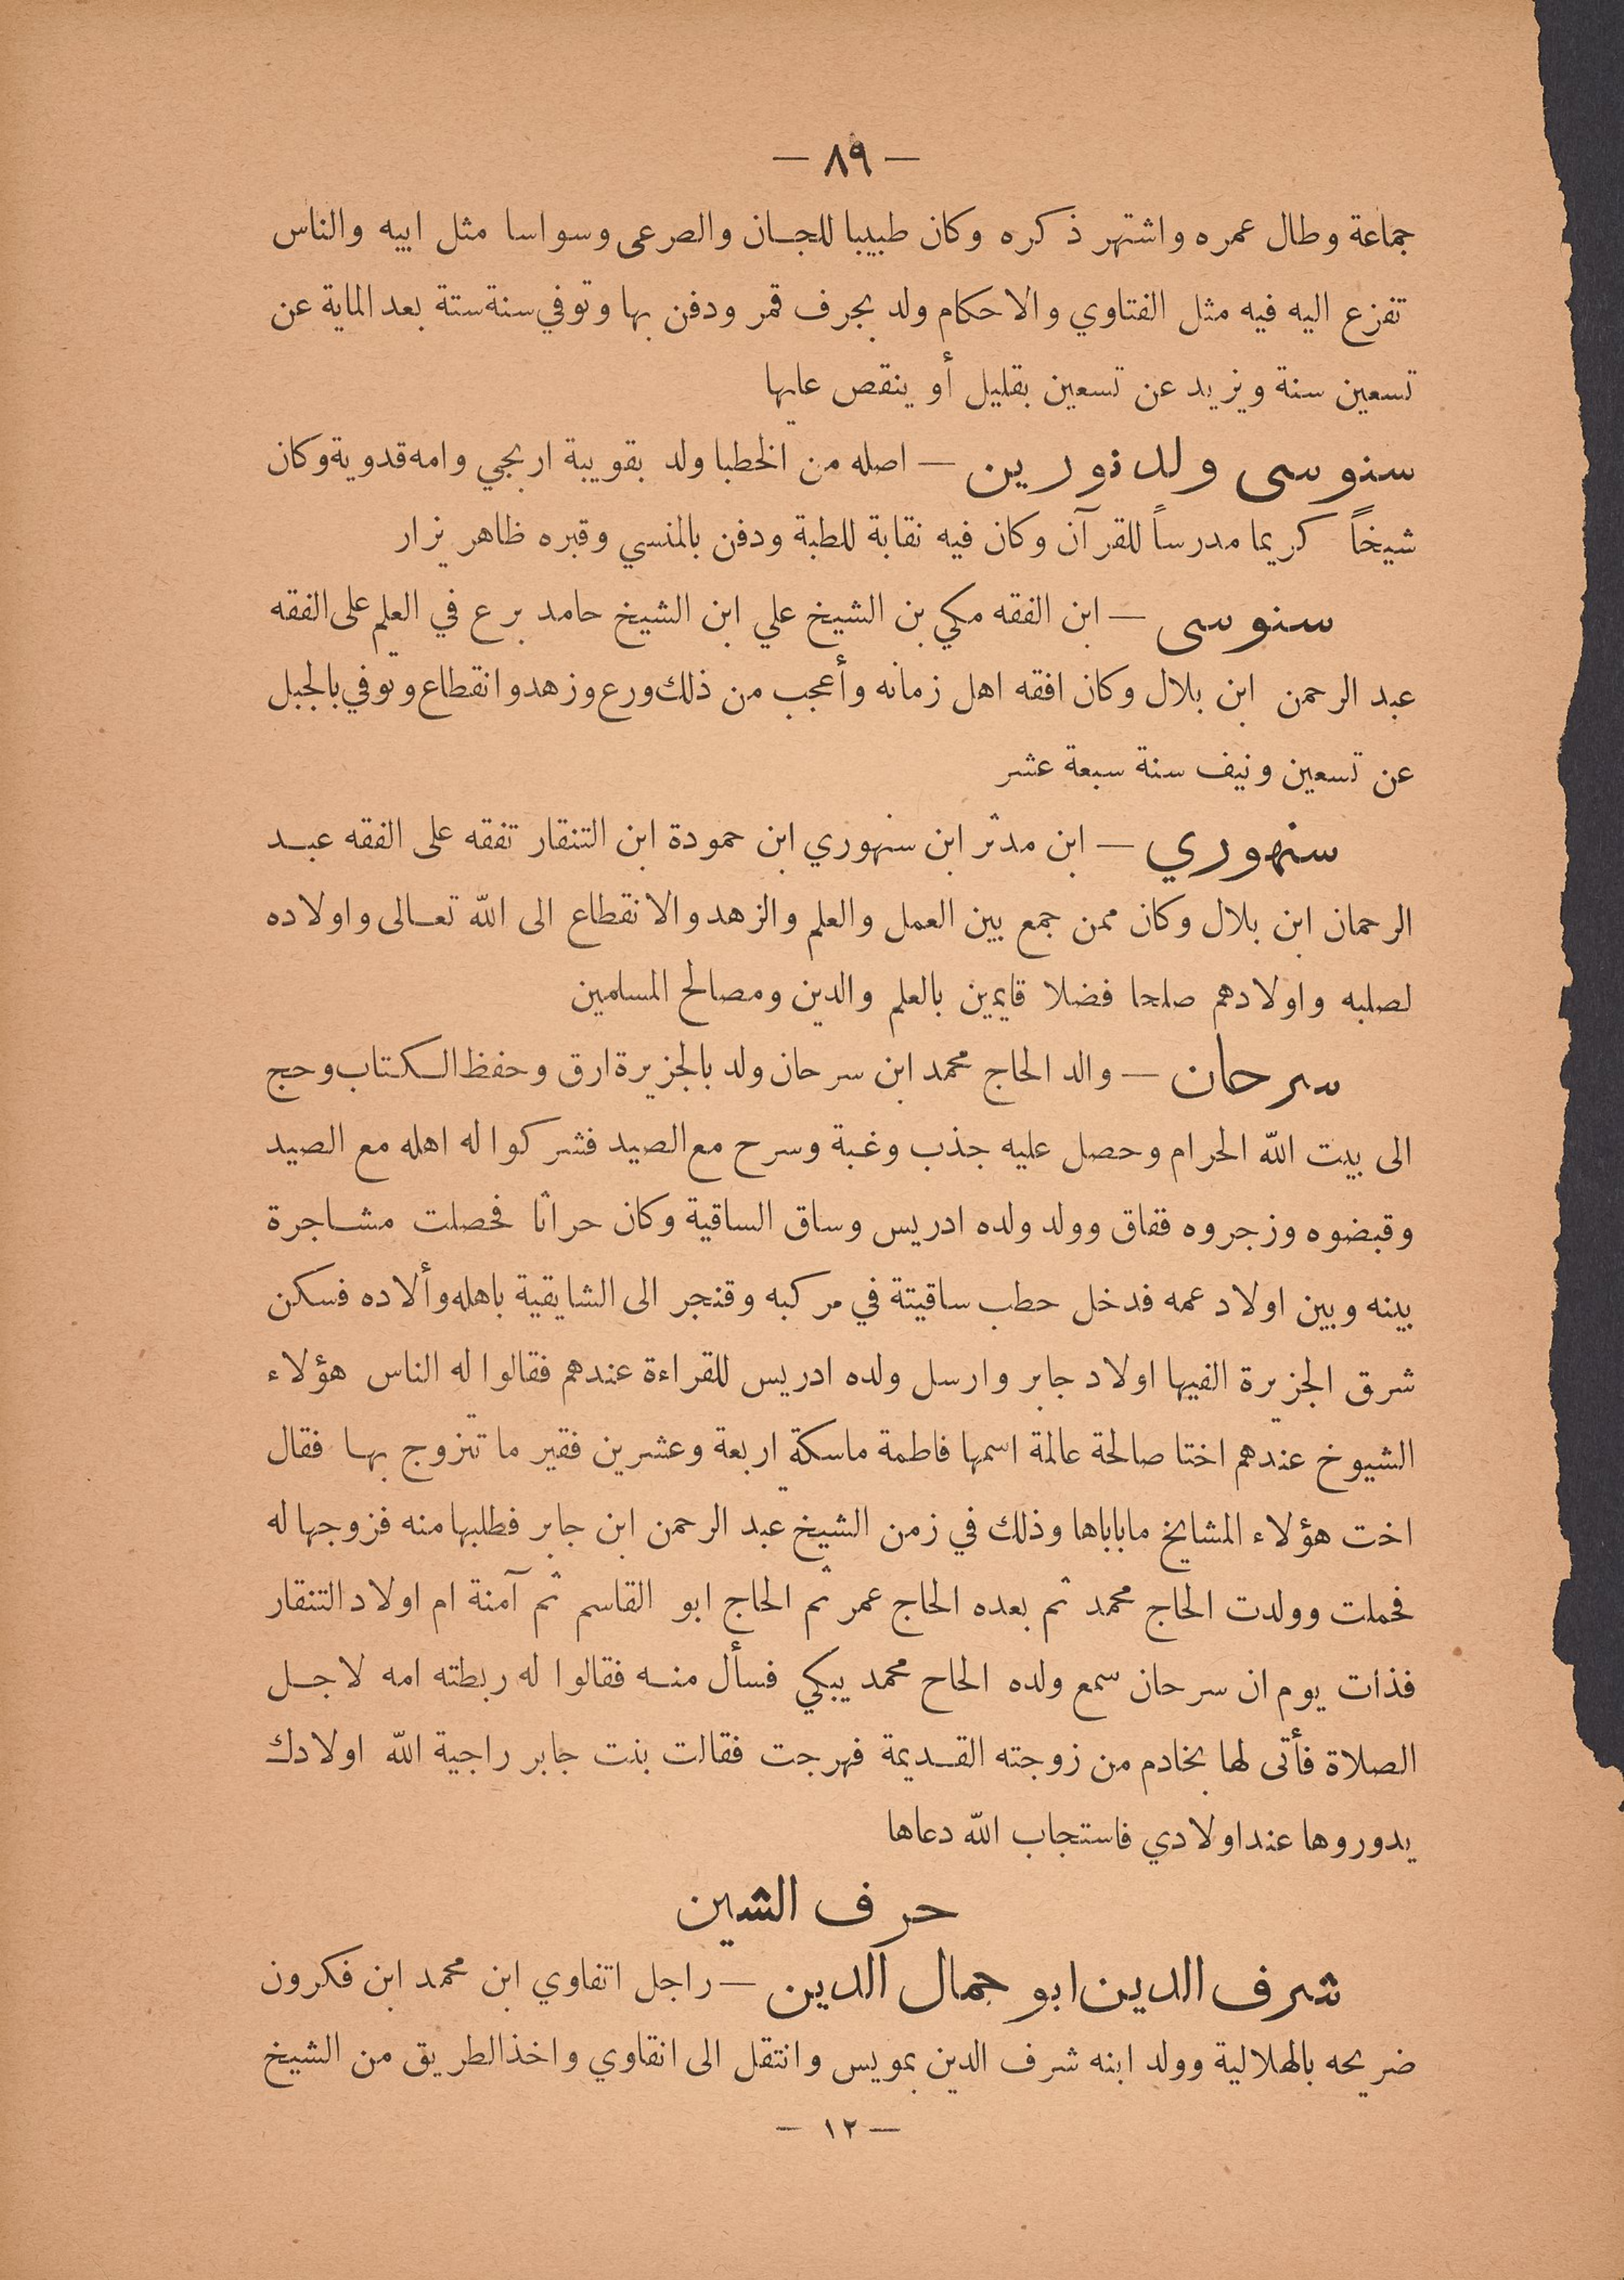 — ٨٩ —
جماعة وطال عمره واشتهر ذكره وكان طبيبا للجان والصرعى وسواسا مثل ابيه والناس
تفزع اليه فيه مثل الفتاوي والاحكام ولد بجرف قمر ودفن بها وتوفي سنة ستة بعد الماية عن
تسعين سنة ويزيد عن تسعين بقليل أو ينقص عليها
سنوسى ولد نورين — اصله من الخطبا ولد بقويبة اربجي وامه قدوية وكان
شيخاً كريما مدرساً للقرآن وكان فيه نقابة للطبة ودفن بالمنسي وقبره ظاهر يزار
سنوسى — ابن الفقه مكي بن الشيخ علي ابن الشيخ حامد برع في العلم على الفقه
عبد الرحمن ابن بلال وكان افقه اهل زمانه وأعجب من ذلك ورع وزهد وانقطاع وتوفي بالجبل
عن تسعين ونيف سنة سبعة عشر
سنهوري — ابن مدثر ابن سنهوري ابن حمودة ابن التنقار تفقه على الفقه عبد
الرحمان ابن بلال وكان ممن جمع بين العمل والعلم والزهد والانقطاع الى الله تعالى واولاده
لصلبه واولادهم صلحا فضلا قايمين بالعلم والدين ومصالح المسلمين
سرحان — والد الحاج محمد ابن سرحان ولد بالجزيرة ارق وحفظ الكتاب وحج
الى بيت الله الحرام وحصل عليه جذب وغبة وسرح مع الصيد فشركوا له اهله مع الصيد
وقبضوه وزجروه ففاق وولد ولده ادريس وساق الساقية وكان حراثا فحصلت مشاجرة
بينه وبين اولاد عمه فدخل حطب ساقيتة في مركبه وقنجر الى الشايقية باهله وألاده فسكن
شرق الجزيرة الفيها اولاد جابر وارسل ولده ادريس للقراءة عندهم فقالوا له الناس هؤلاء
الشيوخ عندهم اختا صالحة عالمة اسمها فاطمة ماسكة اربعة وعشرين فقير ما تتزوج بها فقال
اخت هؤلاء المشايخ ماباباها وذلك في زمن الشيخ عبد الرحمن ابن جابر فطلبها منه فزوجها له
فحملت وولدت الحاج محمد ثم بعده الحاج عمر ثم الحاج ابو القاسم ثم آمنة ام اولاد التنقار
فذات يوم ان سرحان سمع ولده الحاح محمد يبكي فسأل منه فقالوا له ربطته امه لاجل
الصلاة فأتى لها بخادم من زوجته القديمة فهرجت فقالت بنت جابر راجية الله اولادك
يدوروها عند اولادي فاستجاب الله دعاها
حرف الشين
شرف الدين ابو جمال الدين — راجل اتفاوي ابن محمد ابن فكرون
ضريحه بالهلالية وولد ابنه شرف الدين بمويس وانتقل الى انقاوي واخذ الطريق من الشيخ
— ١٢ —